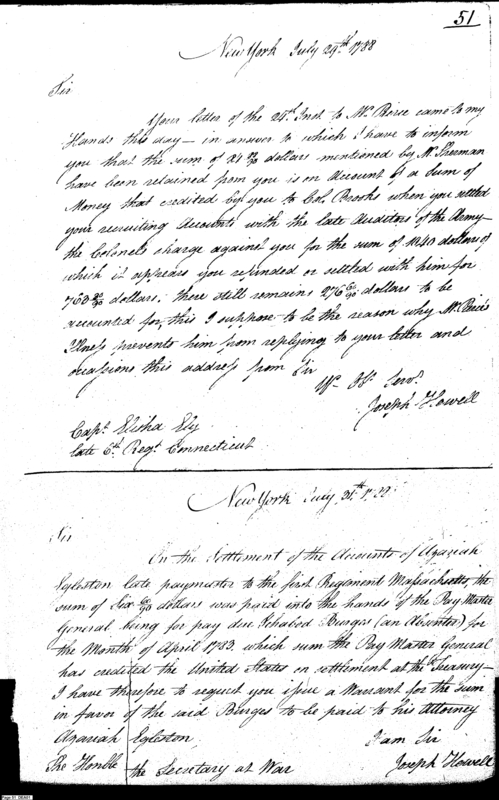 51
New York July 29th 1788
Sir
Your letter of the 24th Inst to Mr Pierce came to my
Hands this day — in answer to which I have to inform
you that the sum of dollars mentioned by Mr Sherman
have been retained from you is on Account of a Sum of
Money that credited by you to Col. Brooks when you settled
your recruiting Accounts with the late Auditors of the Army —
the Colonels charge against you for the sum of 1040 dollars of
which it appears you refunded or settled with him for
763 dollars, there still remains 276 60/90 dollars to be
accounted for, this I suppose to be the reason why Mr Pierce's
Ilness prevents him from replying to your letter and
occassions this address from Sir
Yr Ob. Serv.
Joseph Howell
Capt Elisha Ely
late 6th Regt Connecticut
New York July 31th 1788
Sir
On the Settlement of the Accounts of Azariah
Egleston late paymaster to the first Regiment Massachusetts the
sum of Six 60/90 dollars was paid into the hands of the Pay Master
General being for pay due Ichabod Burges (an Absentee) for
the Month of April 1783. which sum the Pay Master General
has credited the United States on settlement at the Treasury —
I have therefore to request you issue a Warrant for the sum
in favor of the said Burges to be paid to his Attorney
Azariah Egleston,
I am Sir
The Honble the Secretary at War
Joseph Howell